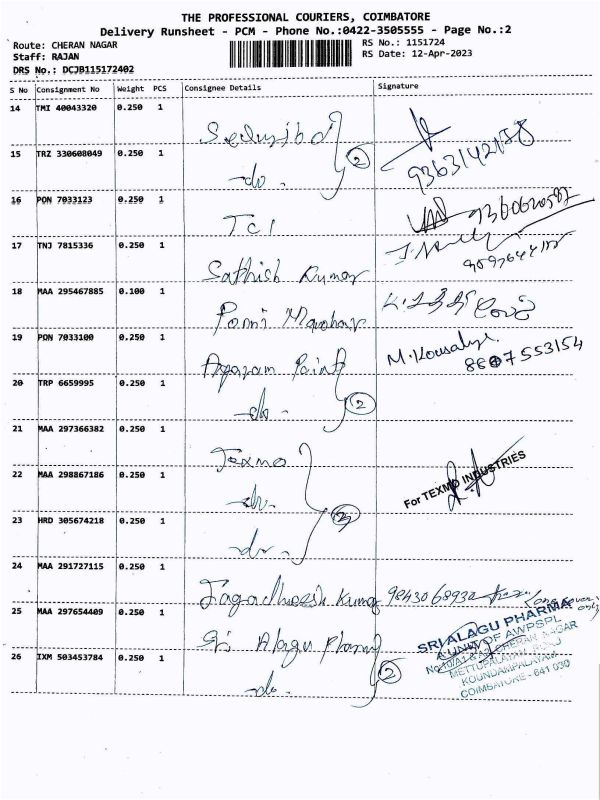 THE PROFESSIONAL COURIERS, COIMBATORE
Delivery Runsheet - PCM - Phone No.:0422-3505555 - Page No.:2
Route: CHERAN NAGAR RS No.: 1151724
Staff: RAJAN RS Date: 12-Apr-2023
DRS No.: DCJB115172402
S No Consignment No Weight PCS Consignee Details Signature
14 TMI 40043320 0.250 1
9363142178
15 TRZ 330608049 0.250 1
-do. 2
16 PON 7033123 0.250 1
TCI
17 TNJ 7815336 0.250 1
Sathish Kumar
18 MAA 295467885 0.100 1
Manohar
19 PON 7033100 0.250 1
M. Kousalya
8607553154
20 TRP 6659995 0.250 1
-do. 2
21 MAA 297366382 0.250 1
Texmo
For TEXMO INDUSTRIES
22 MAA 298867186 0.250 1
-do.
23 HRD 305674218 0.250 1
-do.
24 MAA 291727115 0.250 1
Jagadheesh Kumar 9843068932
25 MAA 297654409 0.250 1
Sri Alagu Pharma
SRI ALAGU PHARMA
A UNIT OF AWPSPL
CHERAN NAGAR
METTUPALAYAM ROAD
KOUNDAMPALAYAM
COIMBATORE - 641 030
26 IXM 503453784 0.250 1
-do. 2